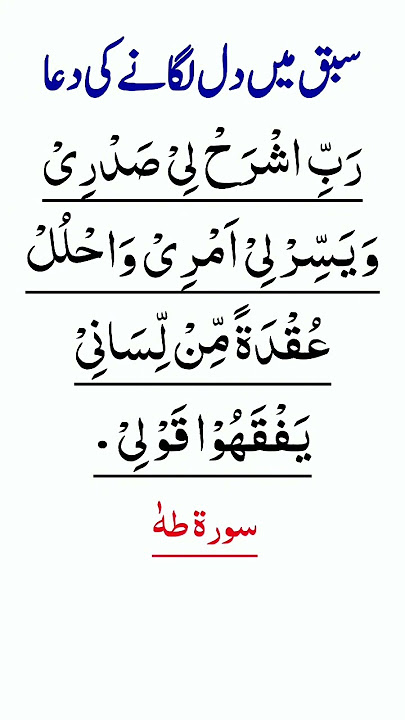 سبق میں دل لگانے کی دعا
رَبِّ اشْرَحْ لِیْ صَدْرِیْ
وَیَسِّرْ لِیْ اَمْرِیْ وَاحْلُلْ
عُقْدَةً مِّنْ لِّسَانِیْ
یَفْقَهُوْا قَوْلِیْ .
سورة طهٰ